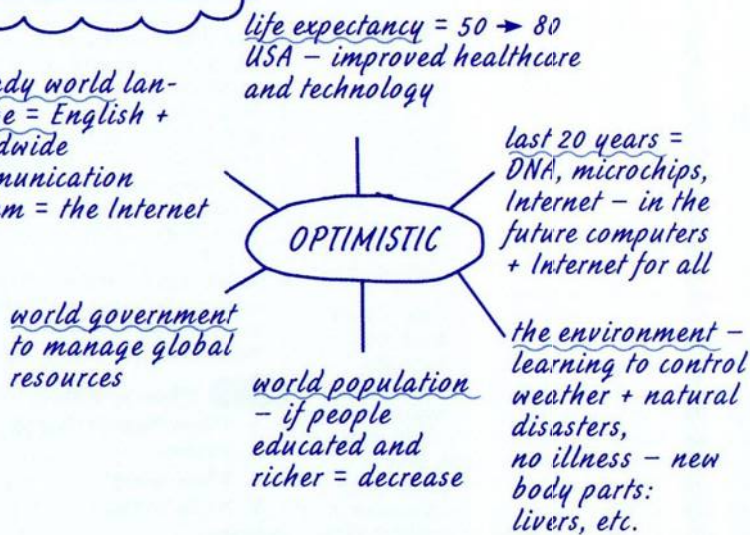 life expectancy = 50 → 80
USA – improved healthcare
and technology
dy world lan-
e = English +
dwide
munication
m = the Internet
last 20 years =
DNA, microchips,
Internet – in the
future computers
+ Internet for all
OPTIMISTIC
world government
to manage global
resources
world population
– if people
educated and
richer = decrease
the environment –
learning to control
weather + natural
disasters,
no illness – new
body parts:
livers, etc.